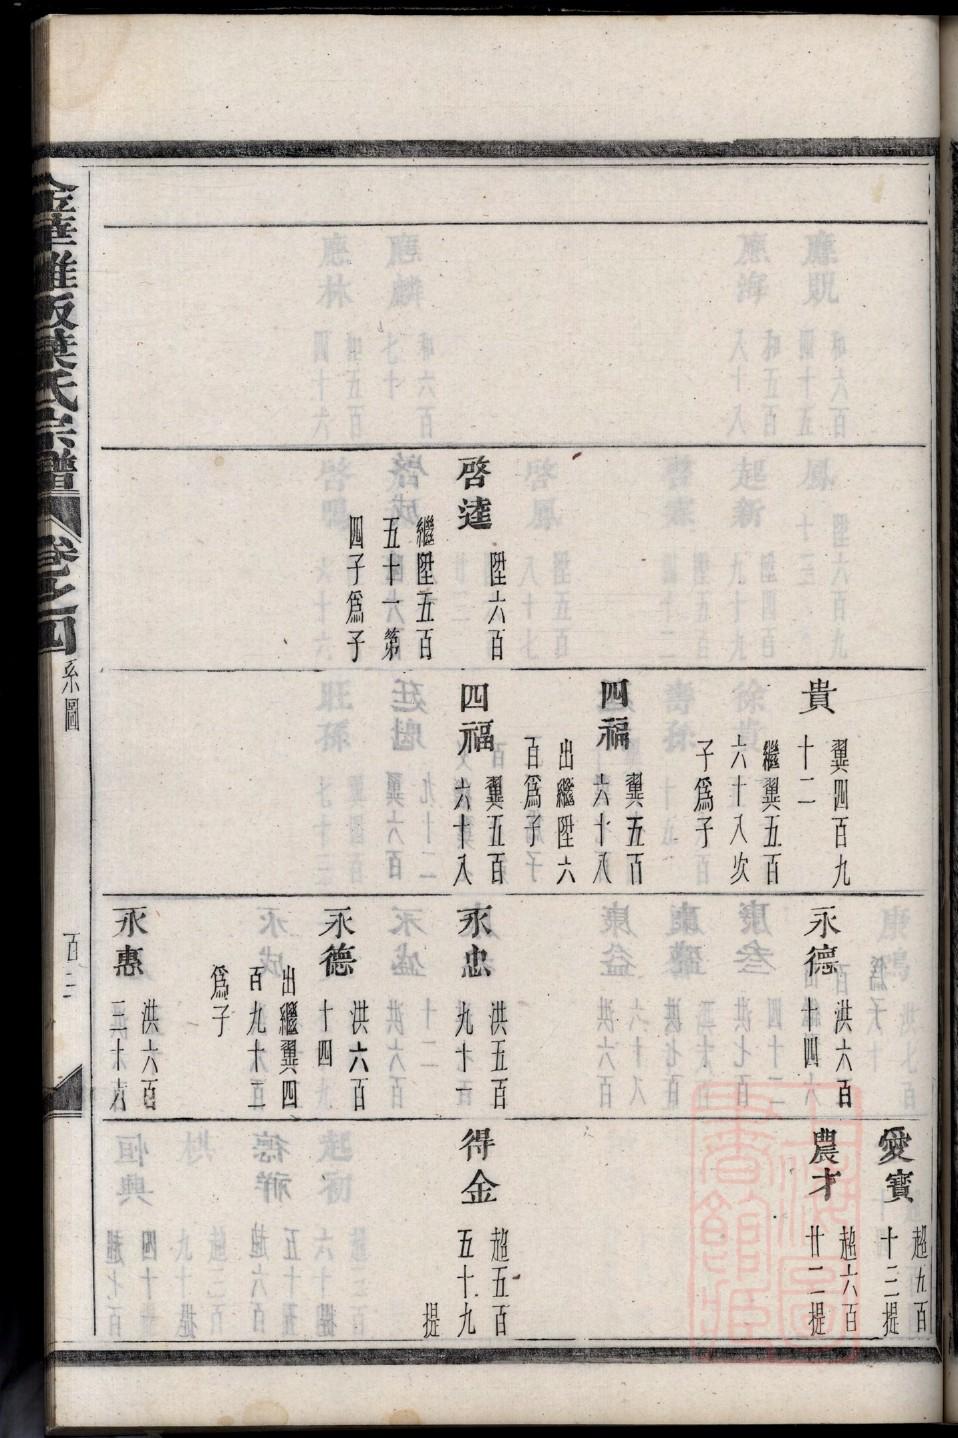 啓達
陞六百
繼陞五百
五十一第
四子爲子
貴
翼四百九
十二
繼翼五百
六十八次
子爲子
四福
翼五百
六十八
出繼陞六
百爲子
四福
翼五百
六十八
永德
洪六百
十四
永忠
洪五百
九十一
永德
洪六百
十四
出繼翼四
百九十二
爲子
永惠
洪六百
三十六
愛寶
超五百
十三提
農才
超六百
廿二提
得金
超五百
五十九
提
葉氏宗譜
卷之四
系圖